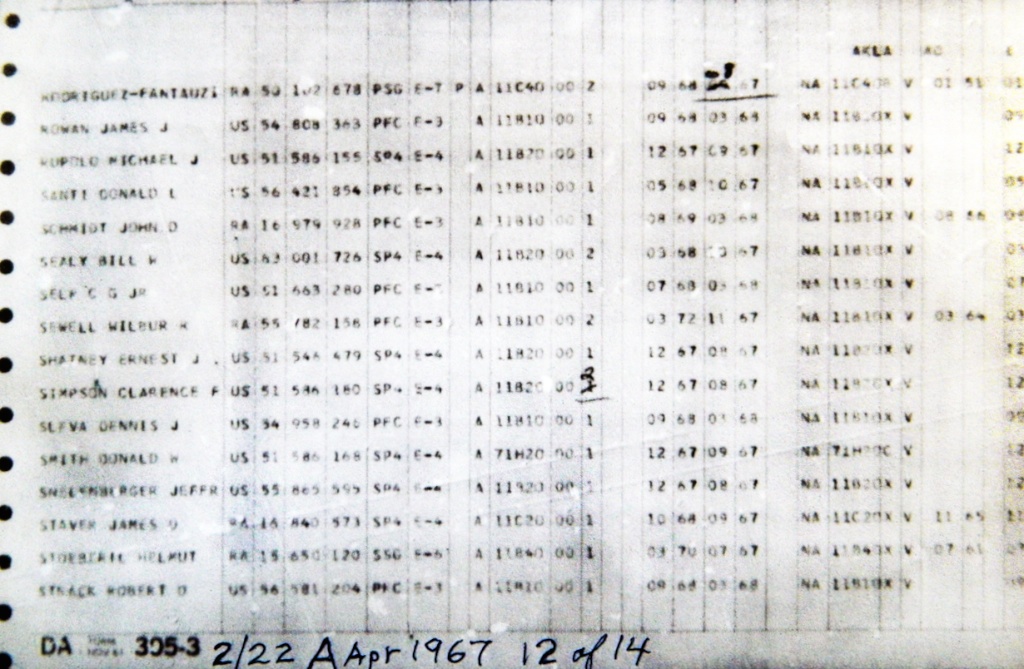 AKLA
RODRIGUEZ-FANTAUZI RA 50 102 678 PSG E-7 P A 11C40 00 2 09 68 67 NA 11C40 V 01 51
ROWAN JAMES J US 54 808 363 PFC E-3 A 11B10 00 1 09 68 03 68 NA 11B10X V
RUPOLO MICHAEL J US 51 586 155 SP4 E-4 A 11B20 00 1 12 67 09 67 NA 11B10X V 12
SANTI DONALD L US 56 421 854 PFC E-3 A 11B10 00 1 05 68 10 67 NA 11B10X V 05
SCHMIDT JOHN D RA 16 979 928 PFC E-3 A 11B10 00 1 08 69 03 68 NA 11B10X V 08 66
SEALY BILL W US 63 001 726 SP4 E-4 A 11B20 00 2 03 68 67 NA 11B10X V 03
SELF C G JR US 51 663 280 PFC A 11B10 00 1 07 68 03 68 NA 11B10X V
SEWELL WILBUR R RA 55 782 156 PFC E-3 A 11B10 00 2 03 72 11 67 NA 11B10X V 03 64 03
SHATNEY ERNEST J US 51 546 479 SP4 E-4 A 11B20 00 1 12 67 08 67 NA V 12
SIMPSON CLARENCE F US 51 586 180 SP4 E-4 A 11B20 00 2 12 67 08 67 NA V 12
SLEVA DENNIS J US 54 958 246 PFC E-3 A 11B10 00 1 09 68 03 68 NA 11B10X V
SMITH DONALD W US 51 586 168 SP4 E-4 A 71H20 00 1 12 67 09 67 NA V 12
SNELENBERGER JEFFR US 55 865 595 SP4 E-4 A 11B20 00 1 12 67 08 67 NA 11B20X V 12
STAVER JAMES O RA 16 840 573 SP4 E-4 A 11C20 00 1 10 68 09 67 NA 11C20X V 11 65 11
HELMUT RA 15 650 120 SSG E-6 A 11B40 00 1 03 70 07 67 NA 11B40X V 07 61
STRACK ROBERT D US 56 581 204 PFC E-3 A 11B10 00 1 09 68 03 68 NA 11B10X V
DA FORM NOV 61 305-3 2/22 A Apr 1967 12 of 14